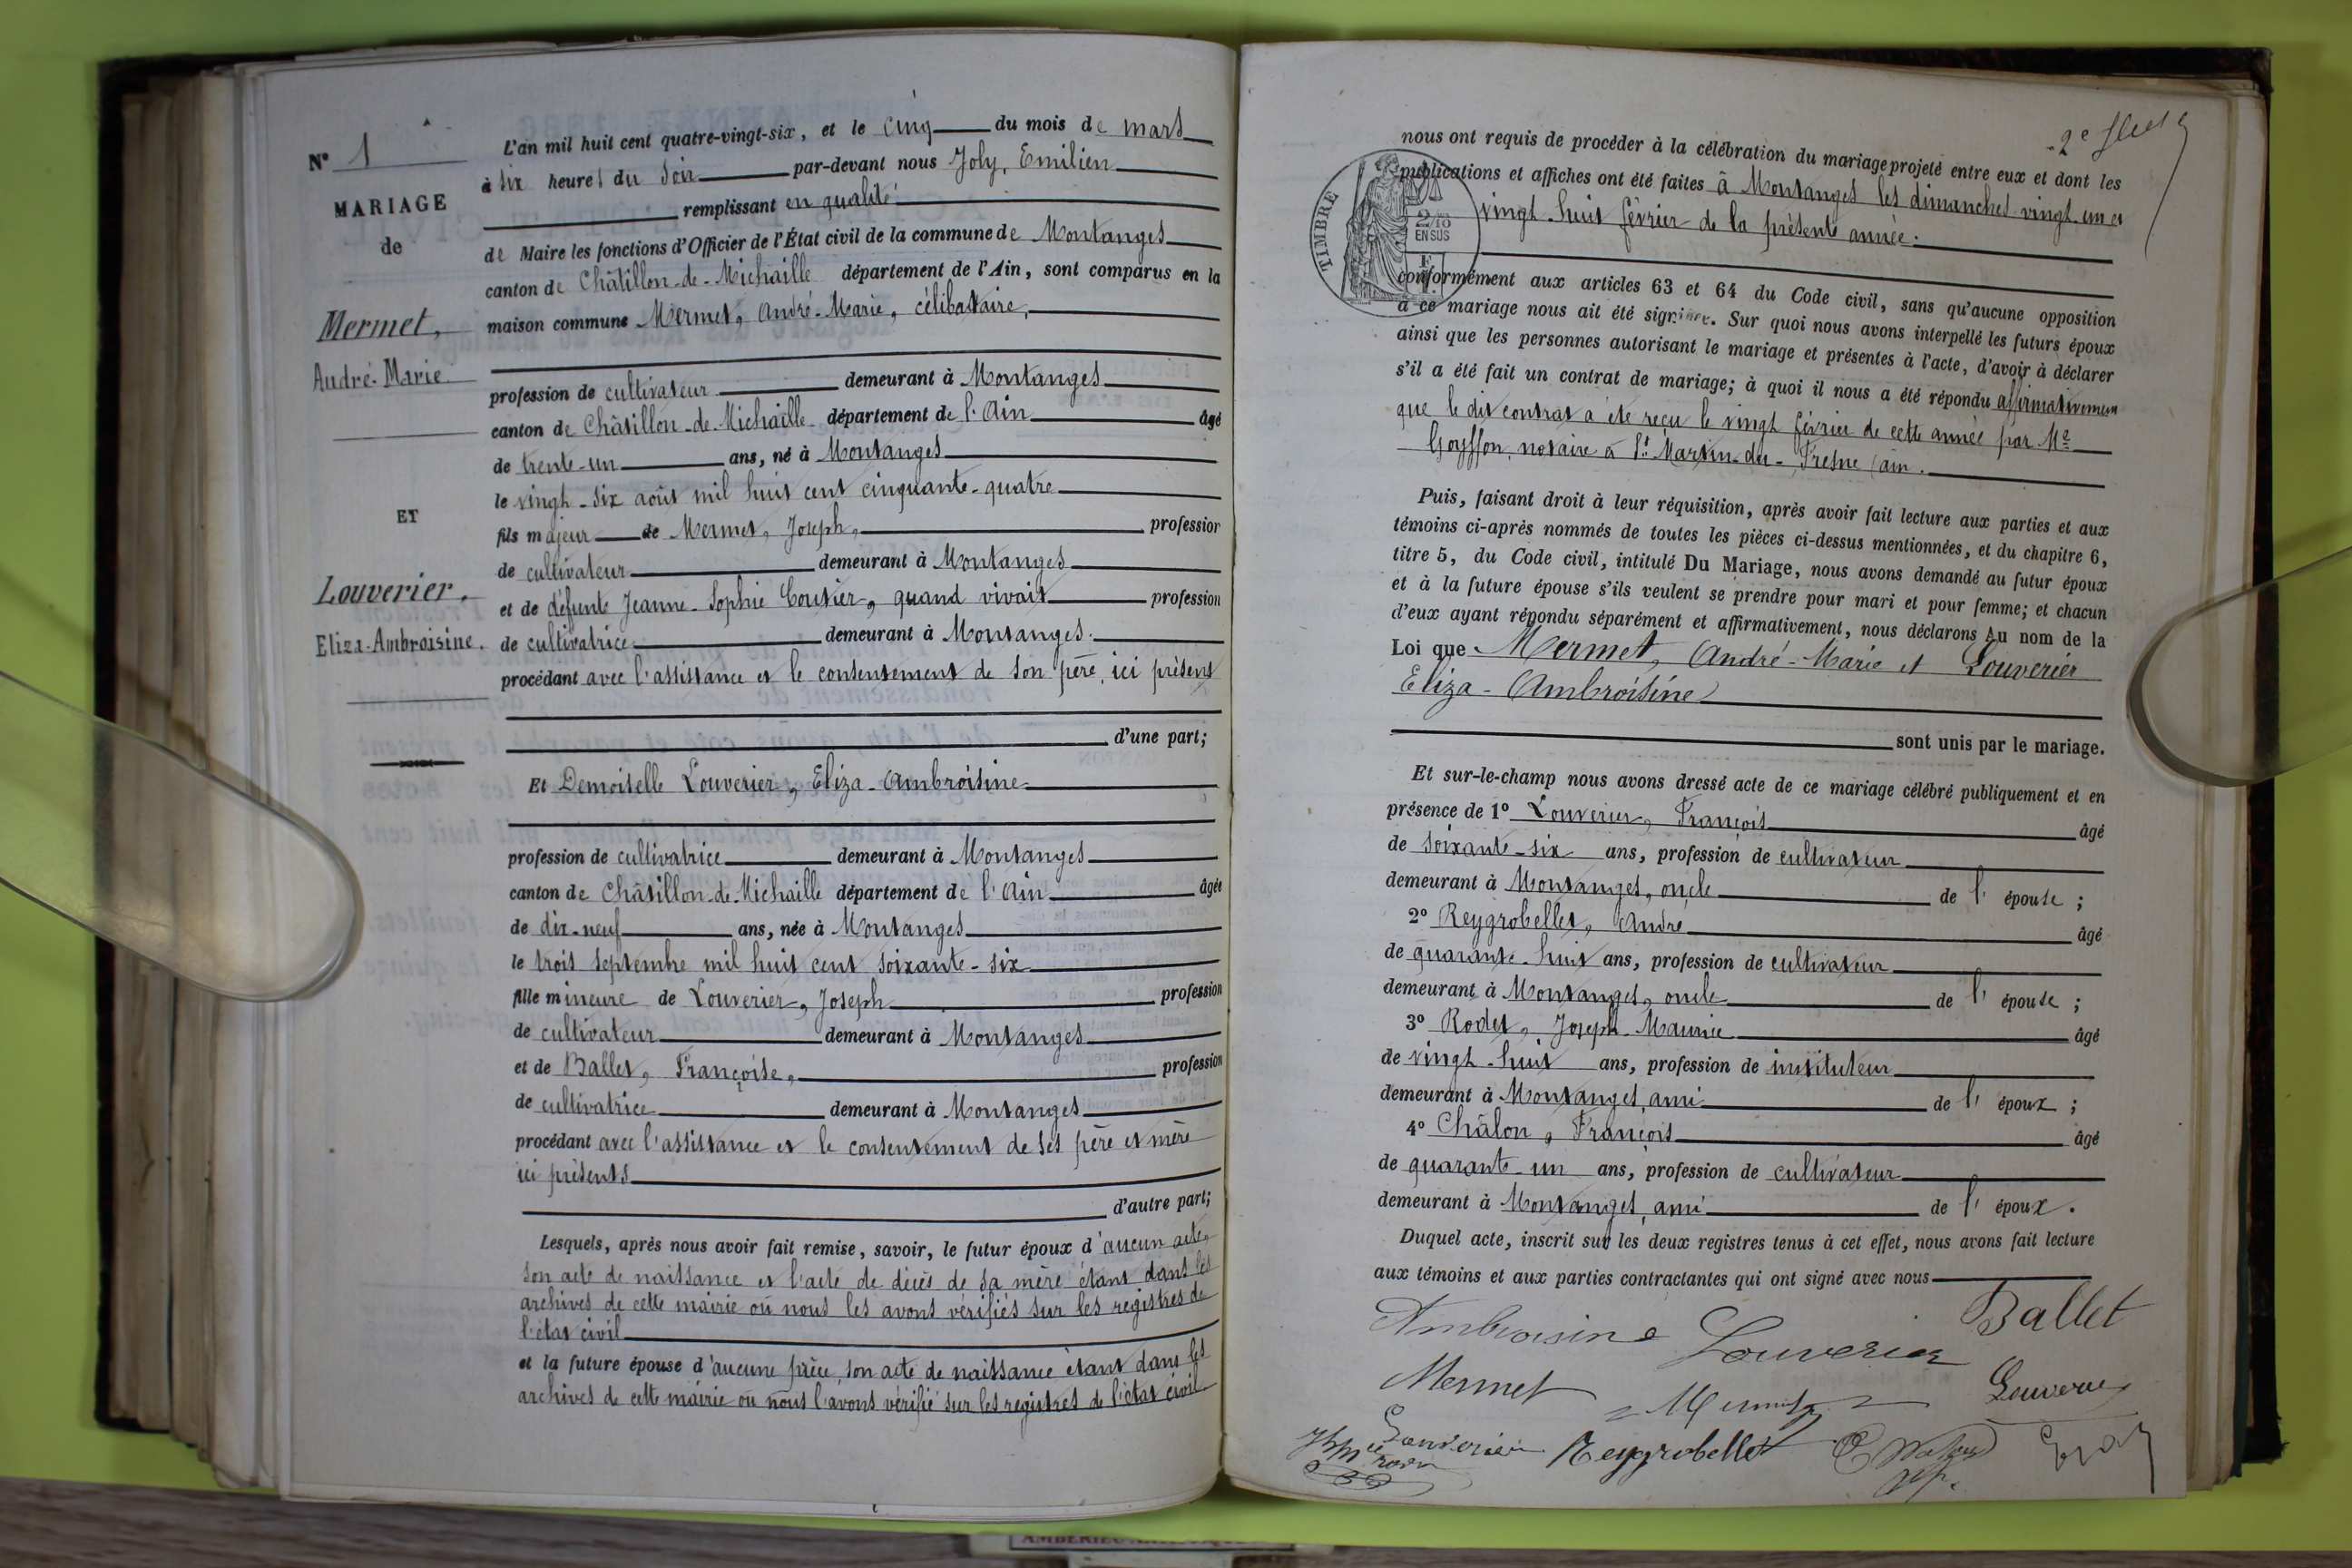 N° 1
MARIAGE
de
Mermet,
André-Marie
ET
Louverier.
Eliza-Ambroisine.
L'an mil huit cent quatre-vingt-six, et le cinq du mois de mars
à six heures du soir par-devant nous Joly, Emilien
remplissant en qualité
de Maire les fonctions d'Officier de l'État civil de la commune de Montanges
canton de Châtillon-de-Michaille département de l'Ain, sont comparus en la
maison commune Mermet, André-Marie, célibataire,
profession de cultivateur demeurant à Montanges
canton de Châtillon-de-Michaille département de l'Ain âgé
de trente-un ans, né à Montanges
le vingt-six août mil huit cent cinquante-quatre
fils majeur de Mermet, Joseph, profession
de cultivateur demeurant à Montanges
et de défunte Jeanne-Sophie Coutier, quand vivait profession
de cultivatrice demeurant à Montanges.
procédant avec l'assistance et le consentement de son père, ici présent
d'une part;
Et Demoiselle Louverier, Eliza-Ambroisine
profession de cultivatrice demeurant à Montanges
canton de Châtillon-de-Michaille département de l'Ain âgée
de dix-neuf ans, née à Montanges
le trois septembre mil huit cent soixante-six
fille mineure de Louverier, Joseph profession
de cultivateur demeurant à Montanges
et de Ballet, Françoise, profession
de cultivatrice demeurant à Montanges
procédant avec l'assistance et le consentement de ses père et mère
ici présents
d'autre part;
Lesquels, après nous avoir fait remise, savoir, le futur époux d'aucun acte,
son acte de naissance et l'acte de décès de sa mère étant dans les
archives de cette mairie où nous les avons vérifiés sur les registres de
l'état civil
et la future épouse d'aucune pièce, son acte de naissance étant dans les
archives de cette mairie où nous l'avons vérifié sur les registres de l'état civil
2e
nous ont requis de procéder à la célébration du mariage projeté entre eux et dont les
publications et affiches ont été faites à Montanges les dimanches vingt-un et
vingt-huit février de la présente année.
TIMBRE
2/10
EN SUS
conformément aux articles 63 et 64 du Code civil, sans qu'aucune opposition
à ce mariage nous ait été signifiée. Sur quoi nous avons interpellé les futurs époux
ainsi que les personnes autorisant le mariage et présentes à l'acte, d'avoir à déclarer
s'il a été fait un contrat de mariage; à quoi il nous a été répondu affirmativement
que le dit contrat a été reçu le vingt février de cette année par Me
Goyffon, notaire à St Martin-du-Fresne (ain.
Puis, faisant droit à leur réquisition, après avoir fait lecture aux parties et aux
témoins ci-après nommés de toutes les pièces ci-dessus mentionnées, et du chapitre 6,
titre 5, du Code civil, intitulé Du Mariage, nous avons demandé au futur époux
et à la future épouse s'ils veulent se prendre pour mari et pour femme; et chacun
d'eux ayant répondu séparément et affirmativement, nous déclarons Au nom de la
Loi que Mermet, André-Marie et Louverier
Eliza-Ambroisine
sont unis par le mariage.
Et sur-le-champ nous avons dressé acte de ce mariage célébré publiquement et en
présence de 1° Louverier, François âgé
de soixante-six ans, profession de cultivateur
demeurant à Montanges, oncle de l'épouse;
2° Reygrobellet, André âgé
de quarante-huit ans, profession de cultivateur
demeurant à Montanges, oncle de l'épouse;
3° Rodet, Joseph-Maurice âgé
de vingt-huit ans, profession de instituteur
demeurant à Montanges, ami de l'époux;
4° Châlon, François âgé
de quarante-un ans, profession de cultivateur
demeurant à Montanges, ami de l'époux.
Duquel acte, inscrit sur les deux registres tenus à cet effet, nous avons fait lecture
aux témoins et aux parties contractantes qui ont signé avec nous
Ambroisine Louverier Ballet
Mermet Mermet Louverier
Louverier Reygrobellet